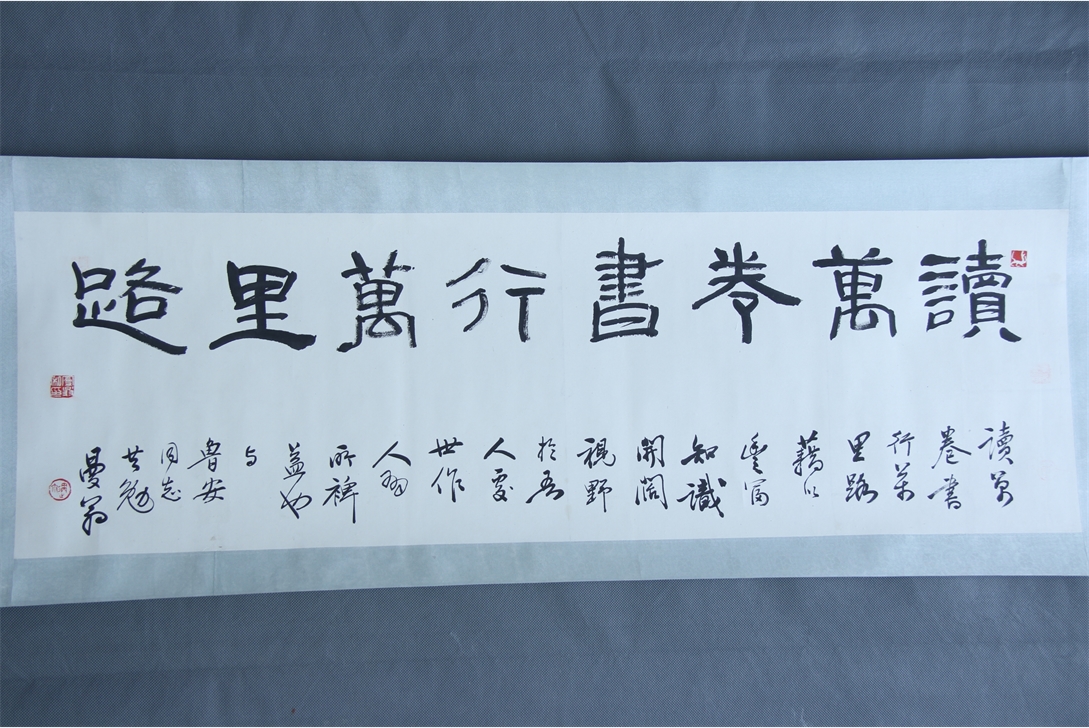 讀萬卷書行萬里路
讀万
卷書
行萬
里路
藉以
豐富
知識
開闊
視野
於吾
人處
世作
人朌
所裨
益也
与
魯安
同志
共勉
曼翁